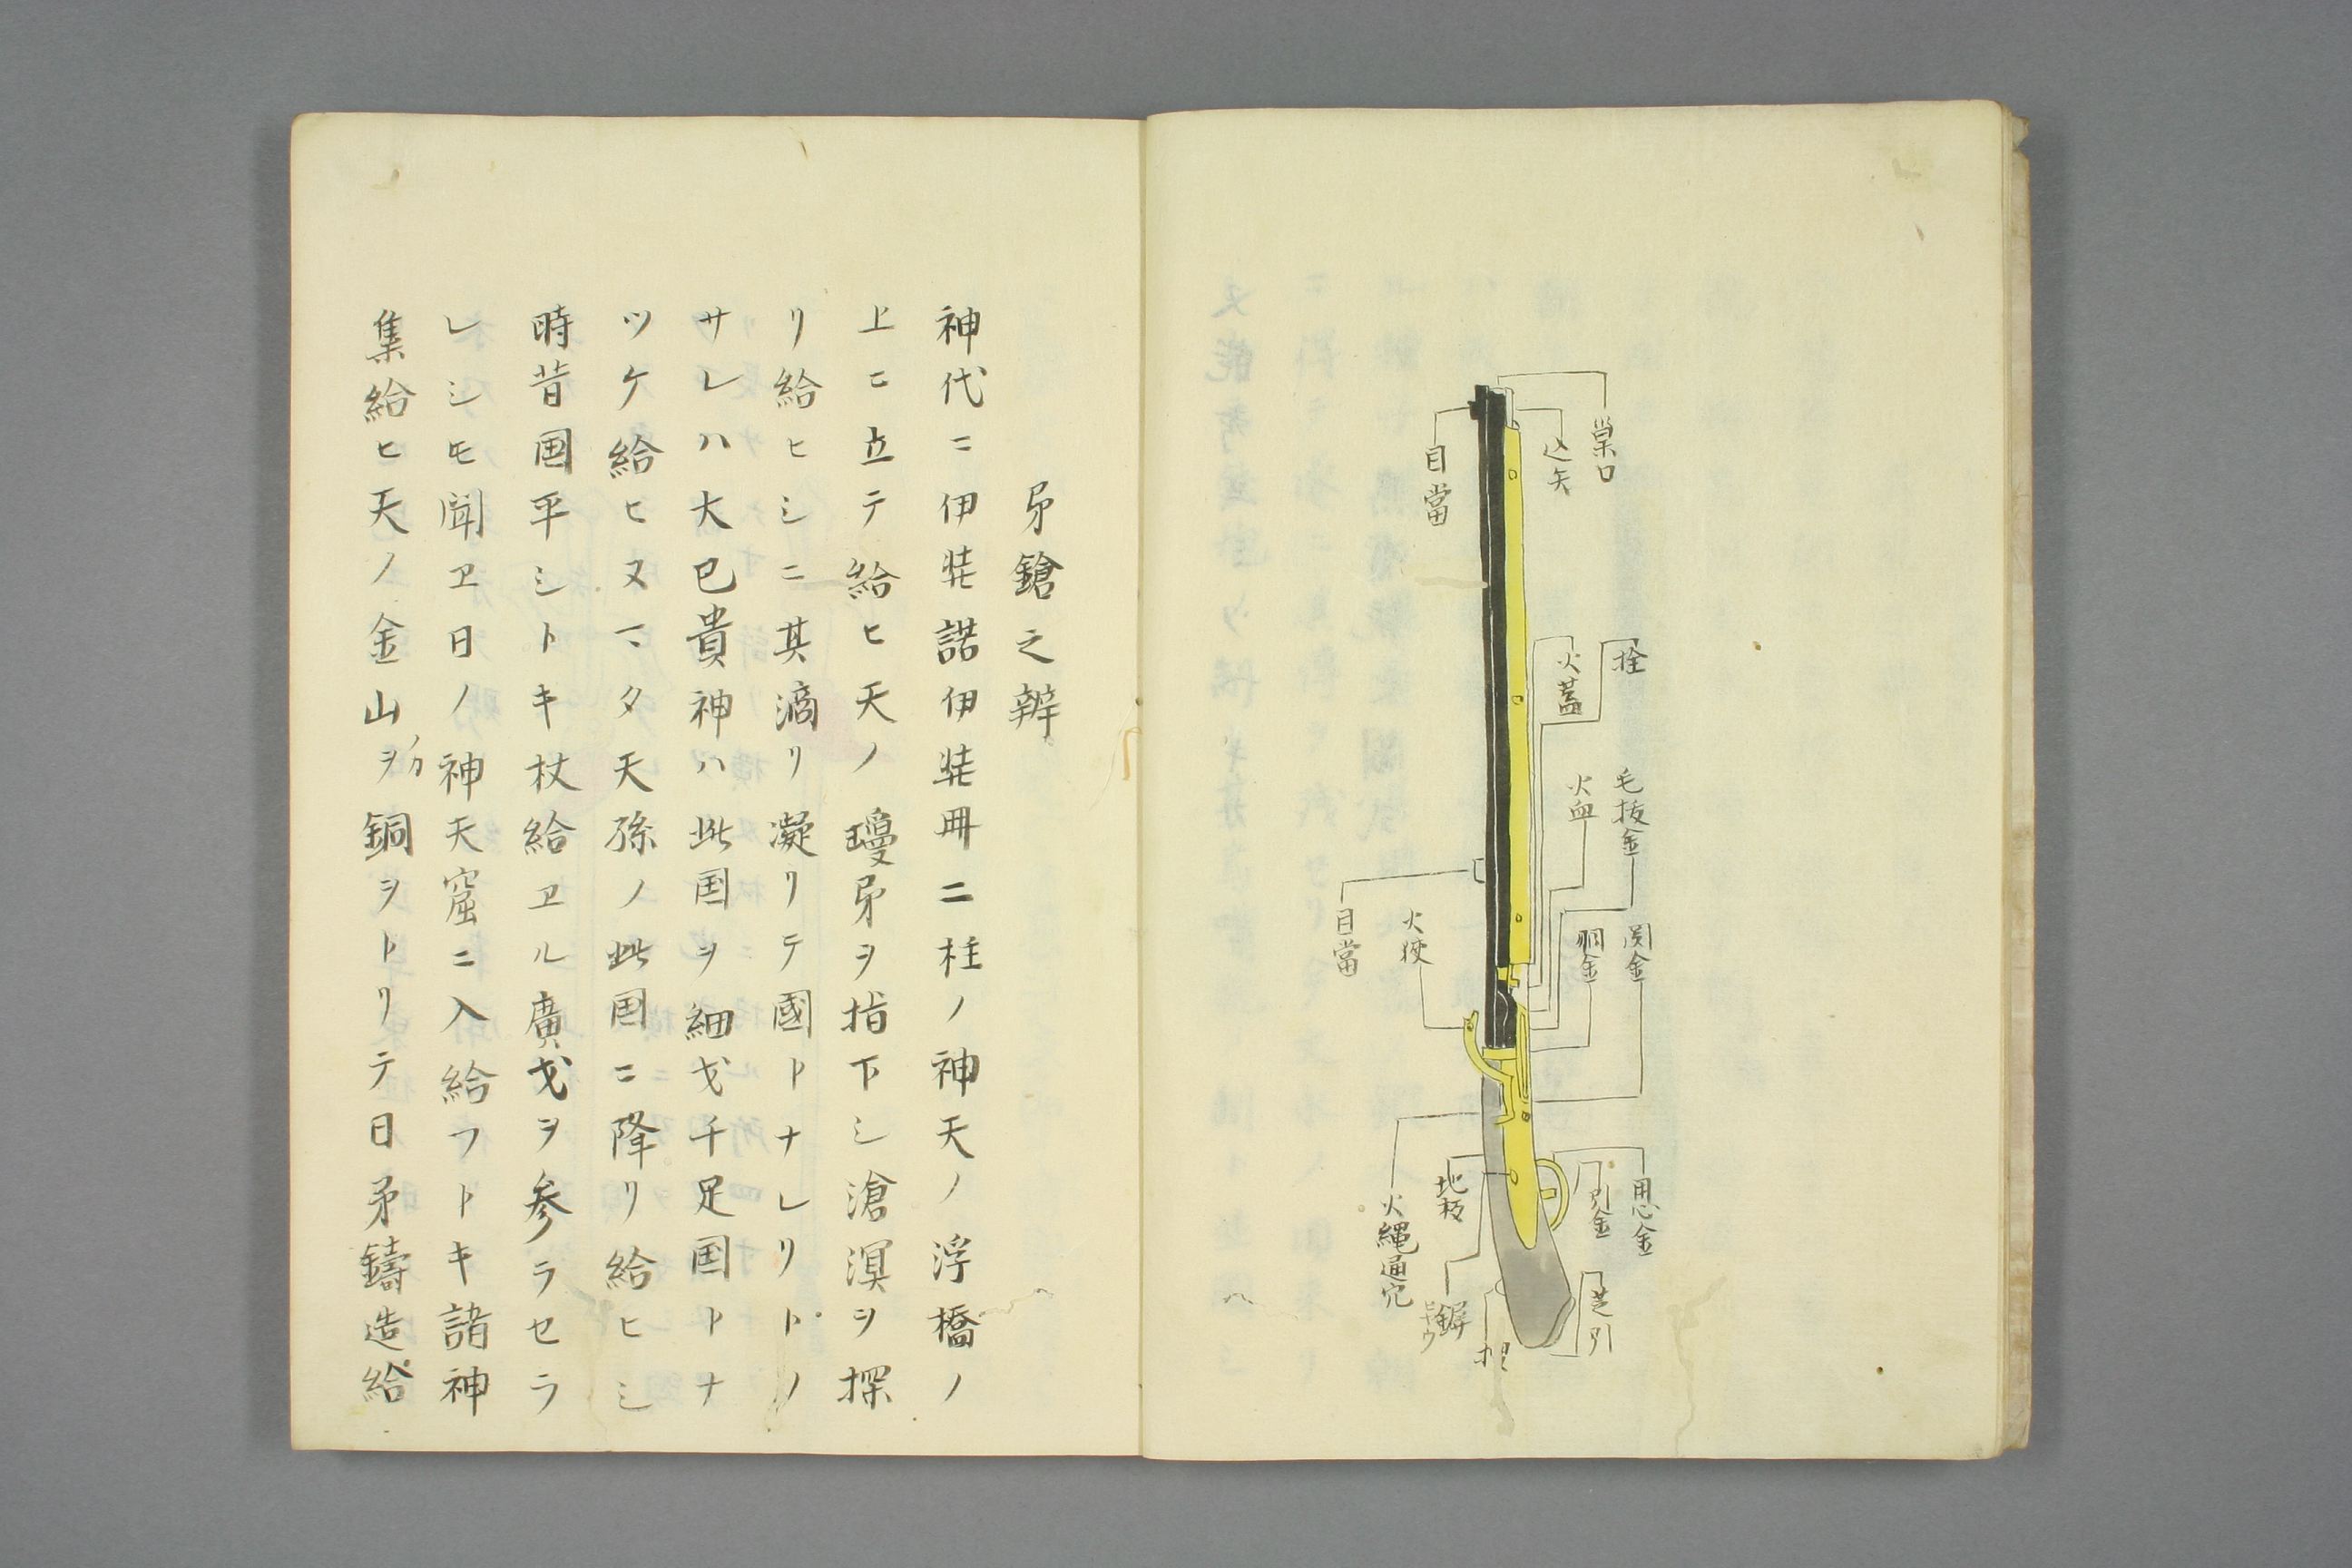 巣口
込矢
目當
栓
火蓋
毛抜金
火皿
関金
胴金
火挾
目當
用心金
引金
地板
火縄通穴
芝引
鋲
ヒヤウ
矛鎗之辨
神代ニ伊弉諾伊弉冊二柱ノ神天ノ浮橋ノ
上ニ立テ給ヒ天ノ瓊矛ヲ指下シ滄溟ヲ探
リ給ヒシニ其滴リ凝リテ國トナレリトノ
サレハ大己貴神ハ此国ヲ細戈千足国トナ
ツケ給ヒヌマタ天孫ノ此国ニ降リ給ヒシ
時昔国平シトキ杖給ヱル廣戈ヲ参ラセラ
レシモ聞ヱ日ノ神天窟ニ入給フトキ諸神
集給ヒ天ノ金山ヲ銅ヲトリテ日矛鑄造給